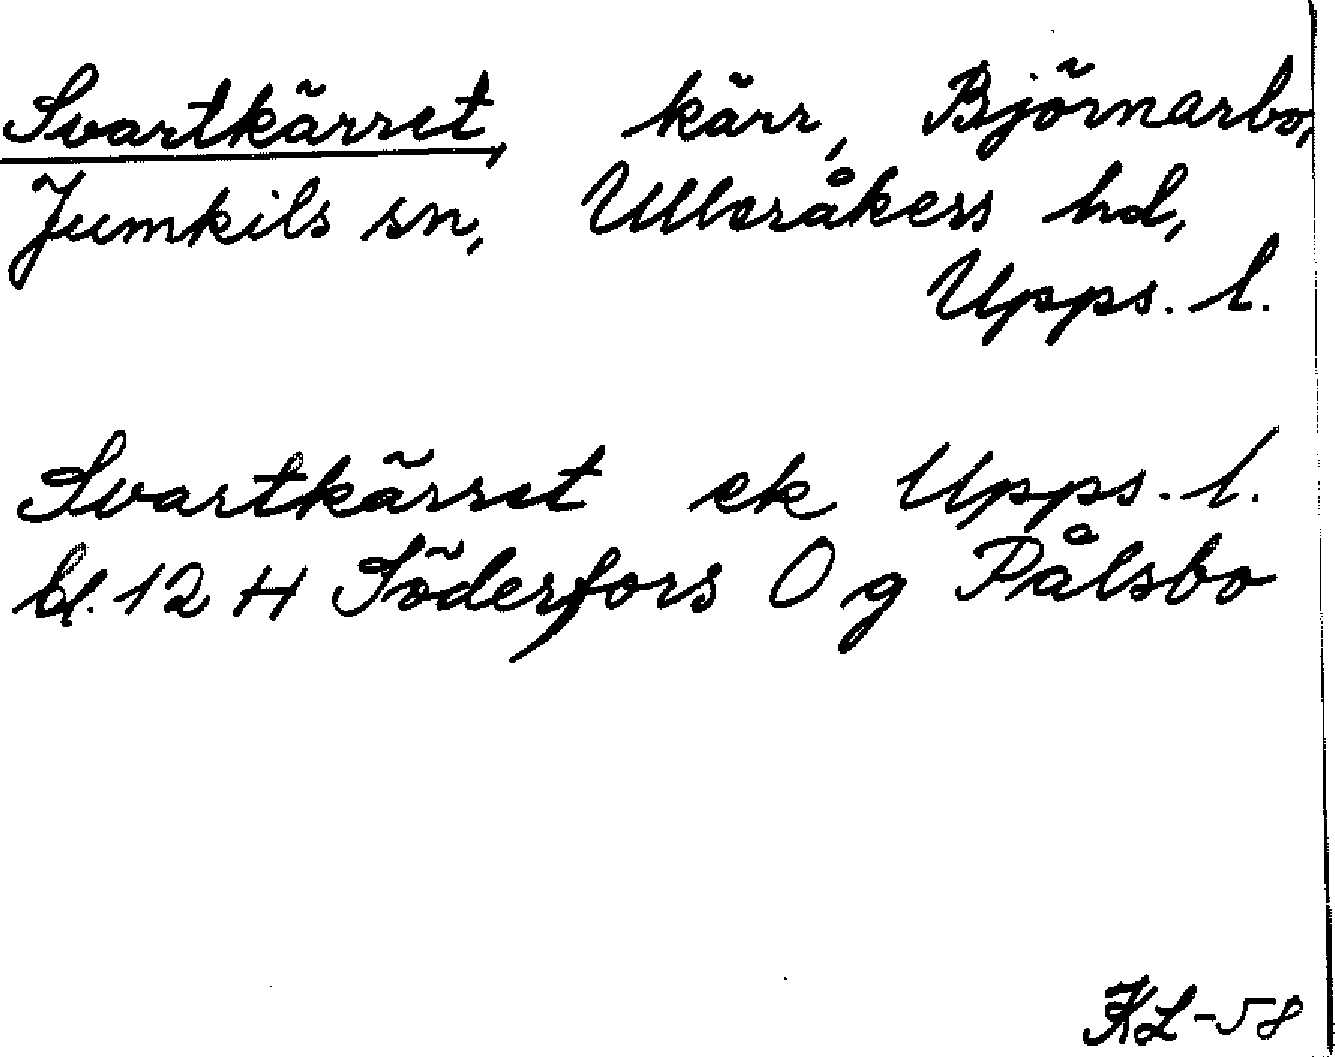 Svartkärret, kärr, Björnarbo,
Jumkils sn, Ulleråkers hd,
Upps. l.
Svartkärret ek Upps. l.
bl. 12 H Söderfors O g Pålsbo
KL-58